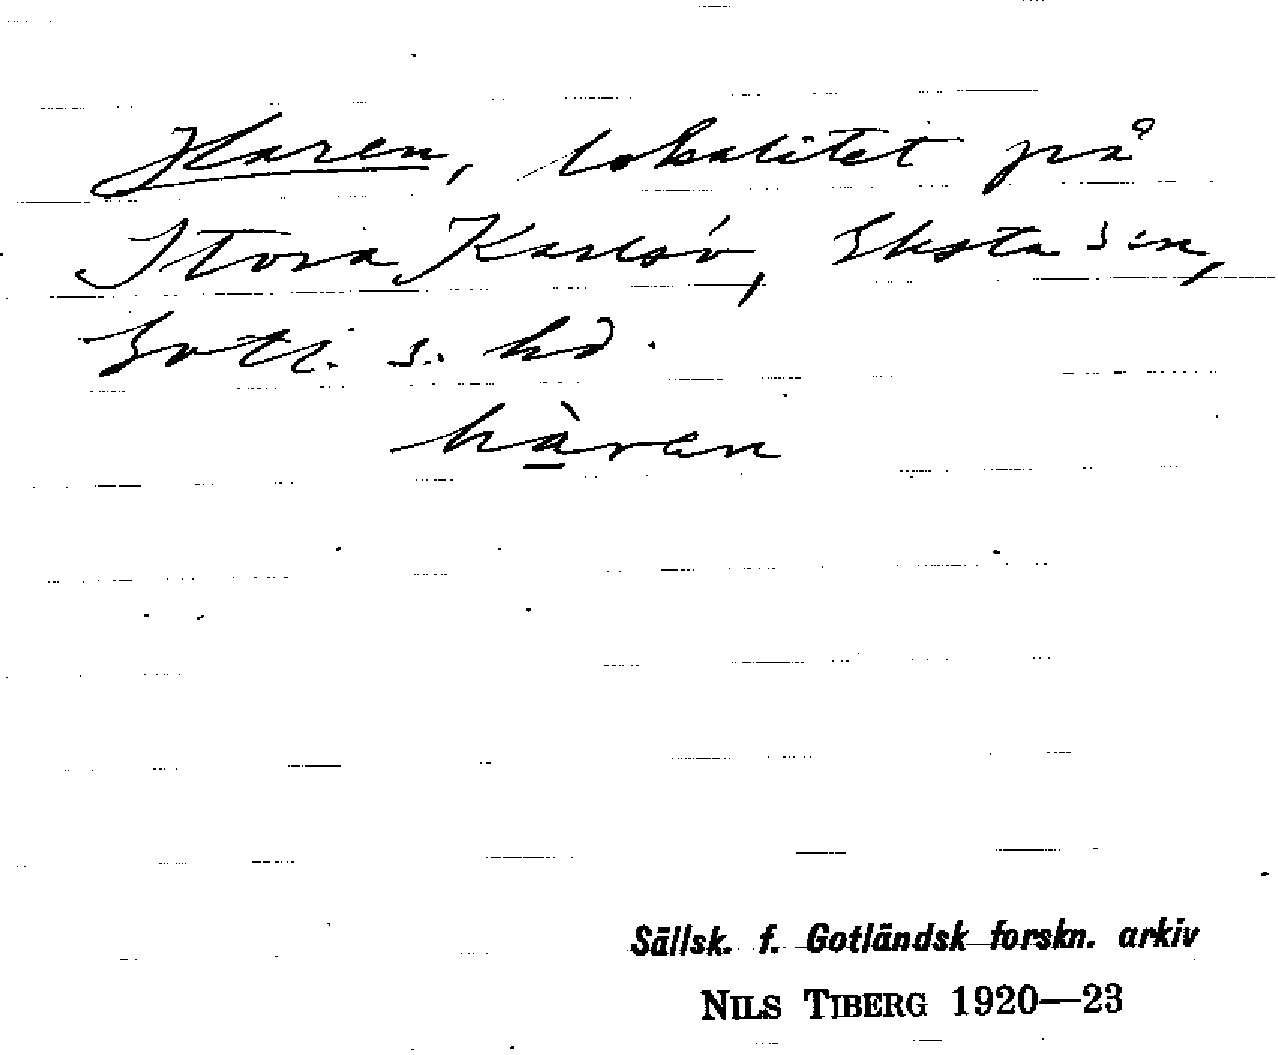 Haren, lokalitet på
Stora Karlsö, Eksta sn,
Gotl. s. hd.
hàren
Sällsk. f. Gotländsk forskn. arkiv
NILS TIBERG 1920—23